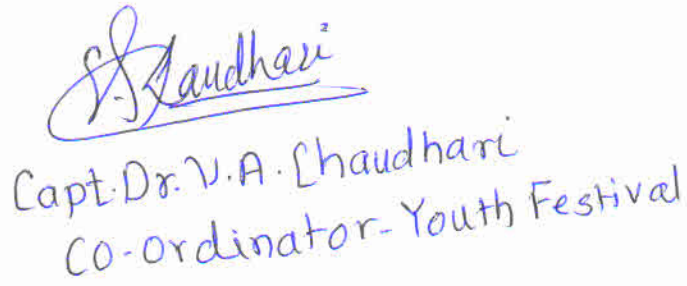 Chaudhari
Capt. Dr. V. A. Chaudhari
Co-ordinator - Youth Festival